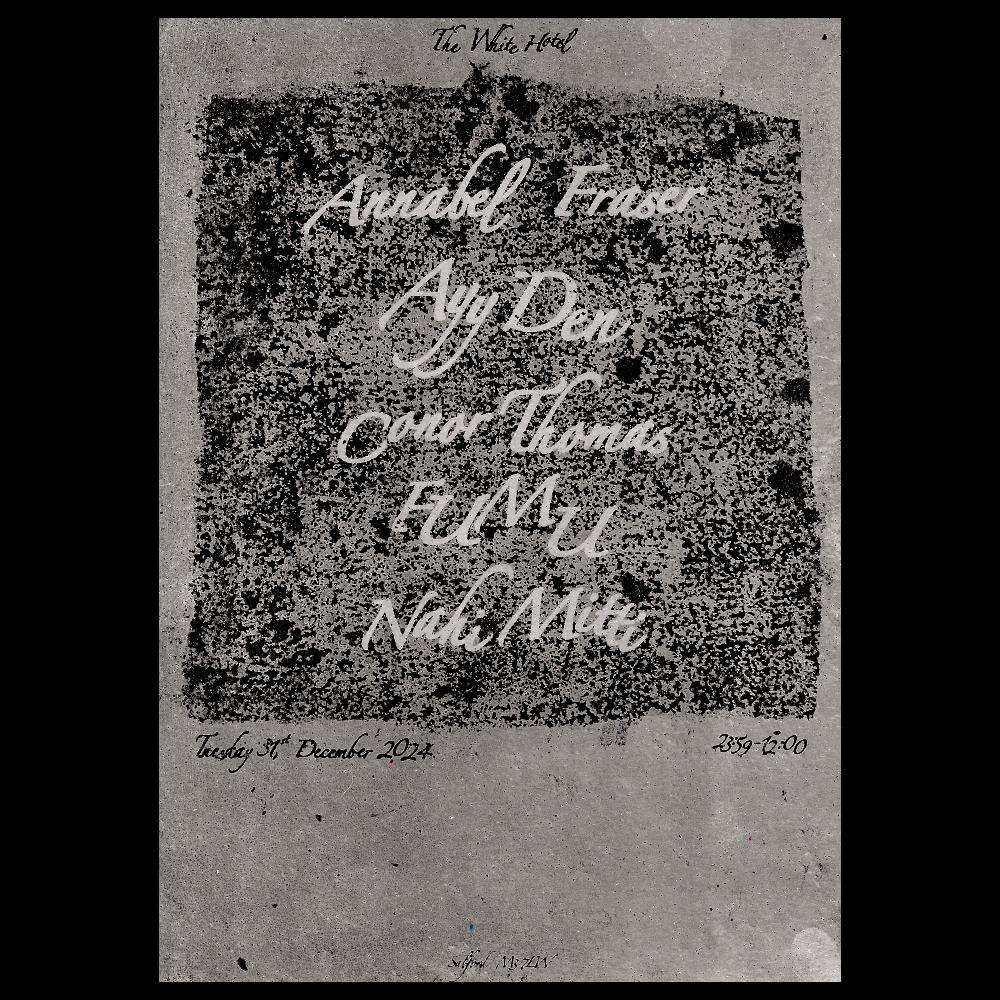 The White Hotel
Annabel Fraser
Ayy Den
Conor Thomas
FUMU
Nahi Mitti
Tuesday 31st December 2024 23:59-12:00
Salford M3 7LW